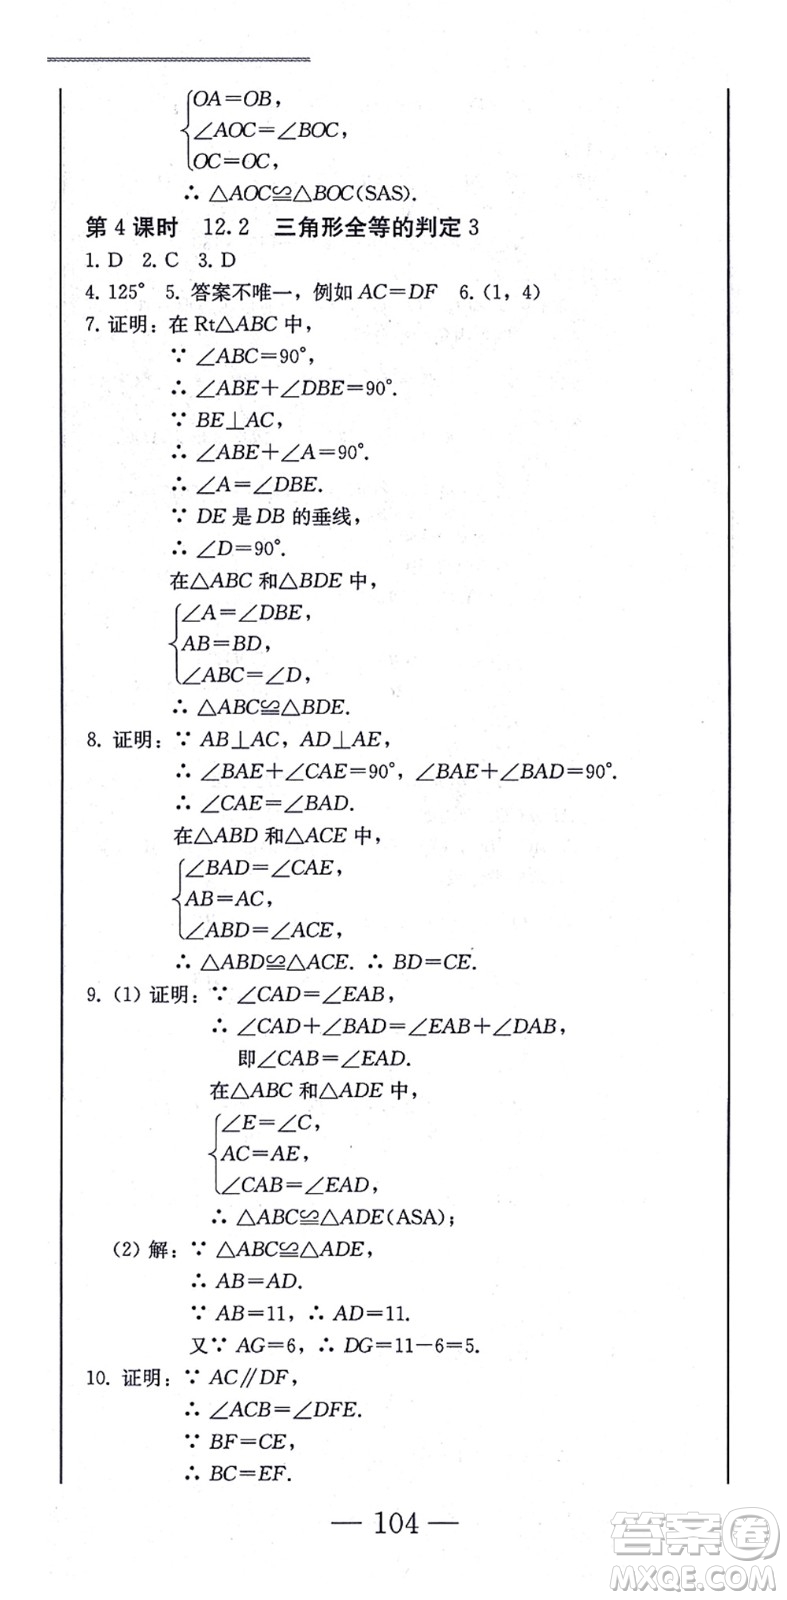 OA=OB，
∠AOC=∠BOC，
OC=OC，
∴ △AOC≌△BOC(SAS).
第 4 课时　12.2　三角形全等的判定 3
1. D　2. C　3. D
4. 125°　5. 答案不唯一，例如 AC=DF　6. (1，4)
7. 证明：在 Rt△ABC 中，
∵ ∠ABC=90°，
∴ ∠ABE+∠DBE=90°.
∵ BE⊥AC，
∴ ∠ABE+∠A=90°.
∴ ∠A=∠DBE.
∵ DE 是 DB 的垂线，
∴ ∠D=90°.
在△ABC 和△BDE 中，
∠A=∠DBE，
AB=BD，
∠ABC=∠D，
∴ △ABC≌△BDE.
8. 证明：∵ AB⊥AC，AD⊥AE，
∴ ∠BAE+∠CAE=90°，∠BAE+∠BAD=90°.
∴ ∠CAE=∠BAD.
在△ABD 和△ACE 中，
∠BAD=∠CAE，
AB=AC，
∠ABD=∠ACE，
∴ △ABD≌△ACE. ∴ BD=CE.
9. (1) 证明：∵ ∠CAD=∠EAB，
∴ ∠CAD+∠BAD=∠EAB+∠DAB，
即∠CAB=∠EAD.
在△ABC 和△ADE 中，
∠E=∠C，
AC=AE，
∠CAB=∠EAD，
∴ △ABC≌△ADE(ASA)；
(2) 解：∵ △ABC≌△ADE，
∴ AB=AD.
∵ AB=11，∴ AD=11.
又∵ AG=6，∴ DG=11-6=5.
10. 证明：∵ AC∥DF，
∴ ∠ACB=∠DFE.
∵ BF=CE，
∴ BC=EF.
— 104 —
答案圈
MXQE.COM